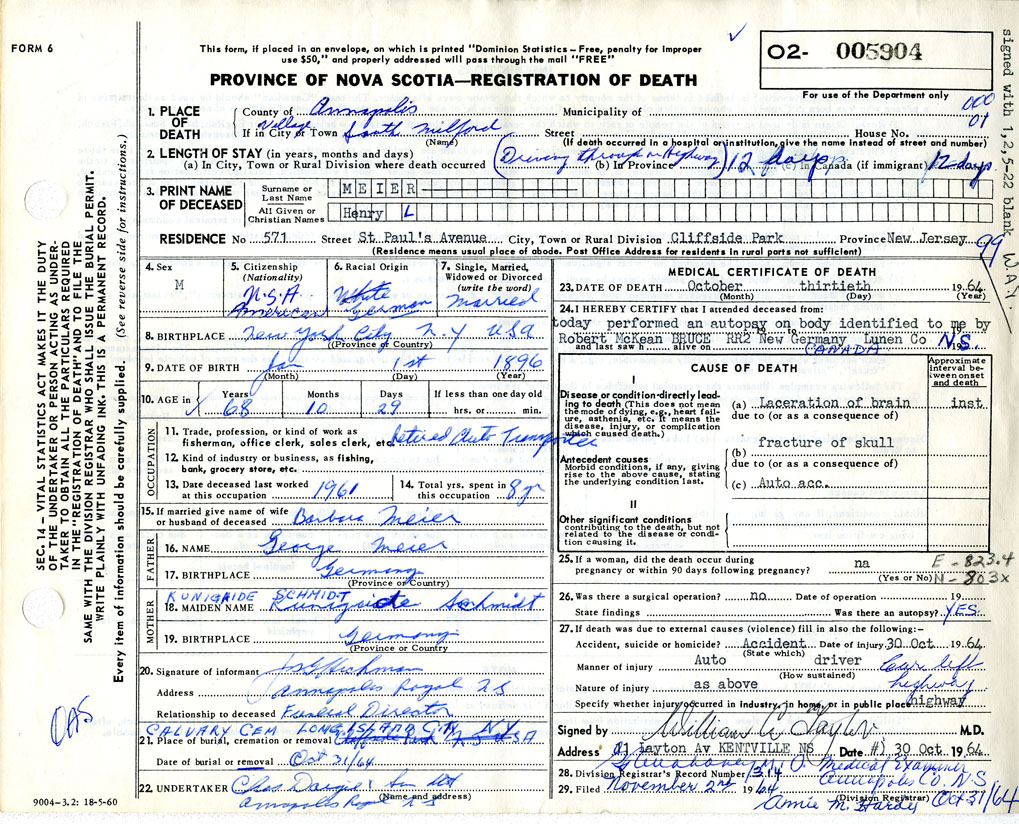 FORM 6
This form, if placed in an envelope, on which is printed "Dominion Statistics – Free, penalty for improper
use $50," and properly addressed will pass through the mail "FREE"
PROVINCE OF NOVA SCOTIA—REGISTRATION OF DEATH
O2- 005904
For use of the Department only
000
01
signed with 1,2,5-22 blank W.A.T.
SEC. 14 – VITAL STATISTICS ACT MAKES IT THE DUTY
OF THE UNDERTAKER OR PERSON ACTING AS UNDER-
TAKER TO OBTAIN ALL THE PARTICULARS REQUIRED
IN THE "REGISTRATION OF DEATH" AND TO FILE THE
SAME WITH THE DIVISION REGISTRAR WHO SHALL ISSUE THE BURIAL PERMIT.
WRITE PLAINLY WITH UNFADING INK. THIS IS A PERMANENT RECORD.
Every item of information should be carefully supplied. (See reverse side for instructions.)
1. PLACE OF DEATH
County of Annapolis Municipality of
Village
If in City or Town South Milford Street House No.
(Name) (If death occurred in a hospital or institution, give the name instead of street and number)
2. LENGTH OF STAY (in years, months and days) (Driving through on Highway) 12 days 12 days
(a) In City, Town or Rural Division where death occurred (b) In Province (c) In Canada (if immigrant)
3. PRINT NAME OF DECEASED
Surname or Last Name MEIER
All Given or Christian Names Henry L
RESIDENCE No 571 Street St Paul's Avenue City, Town or Rural Division Cliffside Park Province New Jersey 99
(Residence means usual place of abode. Post Office Address for residents in rural parts not sufficient)
4. Sex M
5. Citizenship (Nationality) U.S.A American
6. Racial Origin White German
7. Single, Married, Widowed or Divorced (write the word) Married
8. BIRTHPLACE New York City N.Y USA
(Province or Country)
9. DATE OF BIRTH Jan 1st 1896
(Month) (Day) (Year)
10. AGE in Years 68 Months 10 Days 29 If less than one day old hrs. or min.
OCCUPATION
11. Trade, profession, or kind of work as
fisherman, office clerk, sales clerk, etc. Retired Auto Transporter
12. Kind of industry or business, as fishing,
bank, grocery store, etc.
13. Date deceased last worked at this occupation 1961
14. Total yrs. spent in this occupation 8 yr
15. If married give name of wife
or husband of deceased Barbara Meier
FATHER
16. NAME George Meier
17. BIRTHPLACE Germany
(Province or Country)
MOTHER
KUNIGAIDE SCHMIDT
18. MAIDEN NAME Kunigaide Schmidt
19. BIRTHPLACE Germany
(Province or Country)
20. Signature of informant Jos G Hickman
Address Annapolis Royal N S
Relationship to deceased Funeral Director
CALVARY CEM LONG ISLAND CITY NY
21. Place of burial, cremation or removal N J USA
Date of burial or removal Oct 31/64
OAS
22. UNDERTAKER Chas. Dargie & Son Ltd
Annapolis Royal N S
(Name and address)
9004–3.2: 18-5-60
MEDICAL CERTIFICATE OF DEATH
23. DATE OF DEATH October thirtieth 1964
(Month) (Day) (Year)
24. I HEREBY CERTIFY that I attended deceased from:
today performed an autopsy on body identified to me by
Robert McKean BRUCE RR2 New Germany Lunen Co N.S.
and last saw h alive on CANADA 19
CAUSE OF DEATH
Approximate interval between onset and death
I
Disease or condition directly leading to death (This does not mean the mode of dying, e.g., heart failure, asthenia, etc. It means the disease, injury, or complication which caused death.)
(a) Laceration of brain inst
due to (or as a consequence of)
fracture of skull
(b)
due to (or as a consequence of)
Antecedent causes
Morbid conditions, if any, giving rise to the above cause, stating the underlying condition last.
(c) Auto acc.
II
Other significant conditions
contributing to the death, but not related to the disease or condition causing it.
25. If a woman, did the death occur during
pregnancy or within 90 days following pregnancy? na
(Yes or No)
E - 823.4
N - 803x
26. Was there a surgical operation? no Date of operation 19
State findings Was there an autopsy? YES
27. If death was due to external causes (violence) fill in also the following:–
Accident, suicide or homicide? Accident Date of injury 30 Oct 1964
(State which)
Manner of injury Auto driver Car left highway
(How sustained)
Nature of injury as above
Specify whether injury occurred in industry, in home, or in public place highway
Signed by William A Taylor M.D.
Address 21 Layton Av KENTVILLE NS Date 30 Oct. 1964
Medical Examiner
Annapolis Co. N.S
28. Division Registrar's Record Number 314
29. Filed November 2nd 1964 Annie M. Hardy Oct 31/64
(Division Registrar)